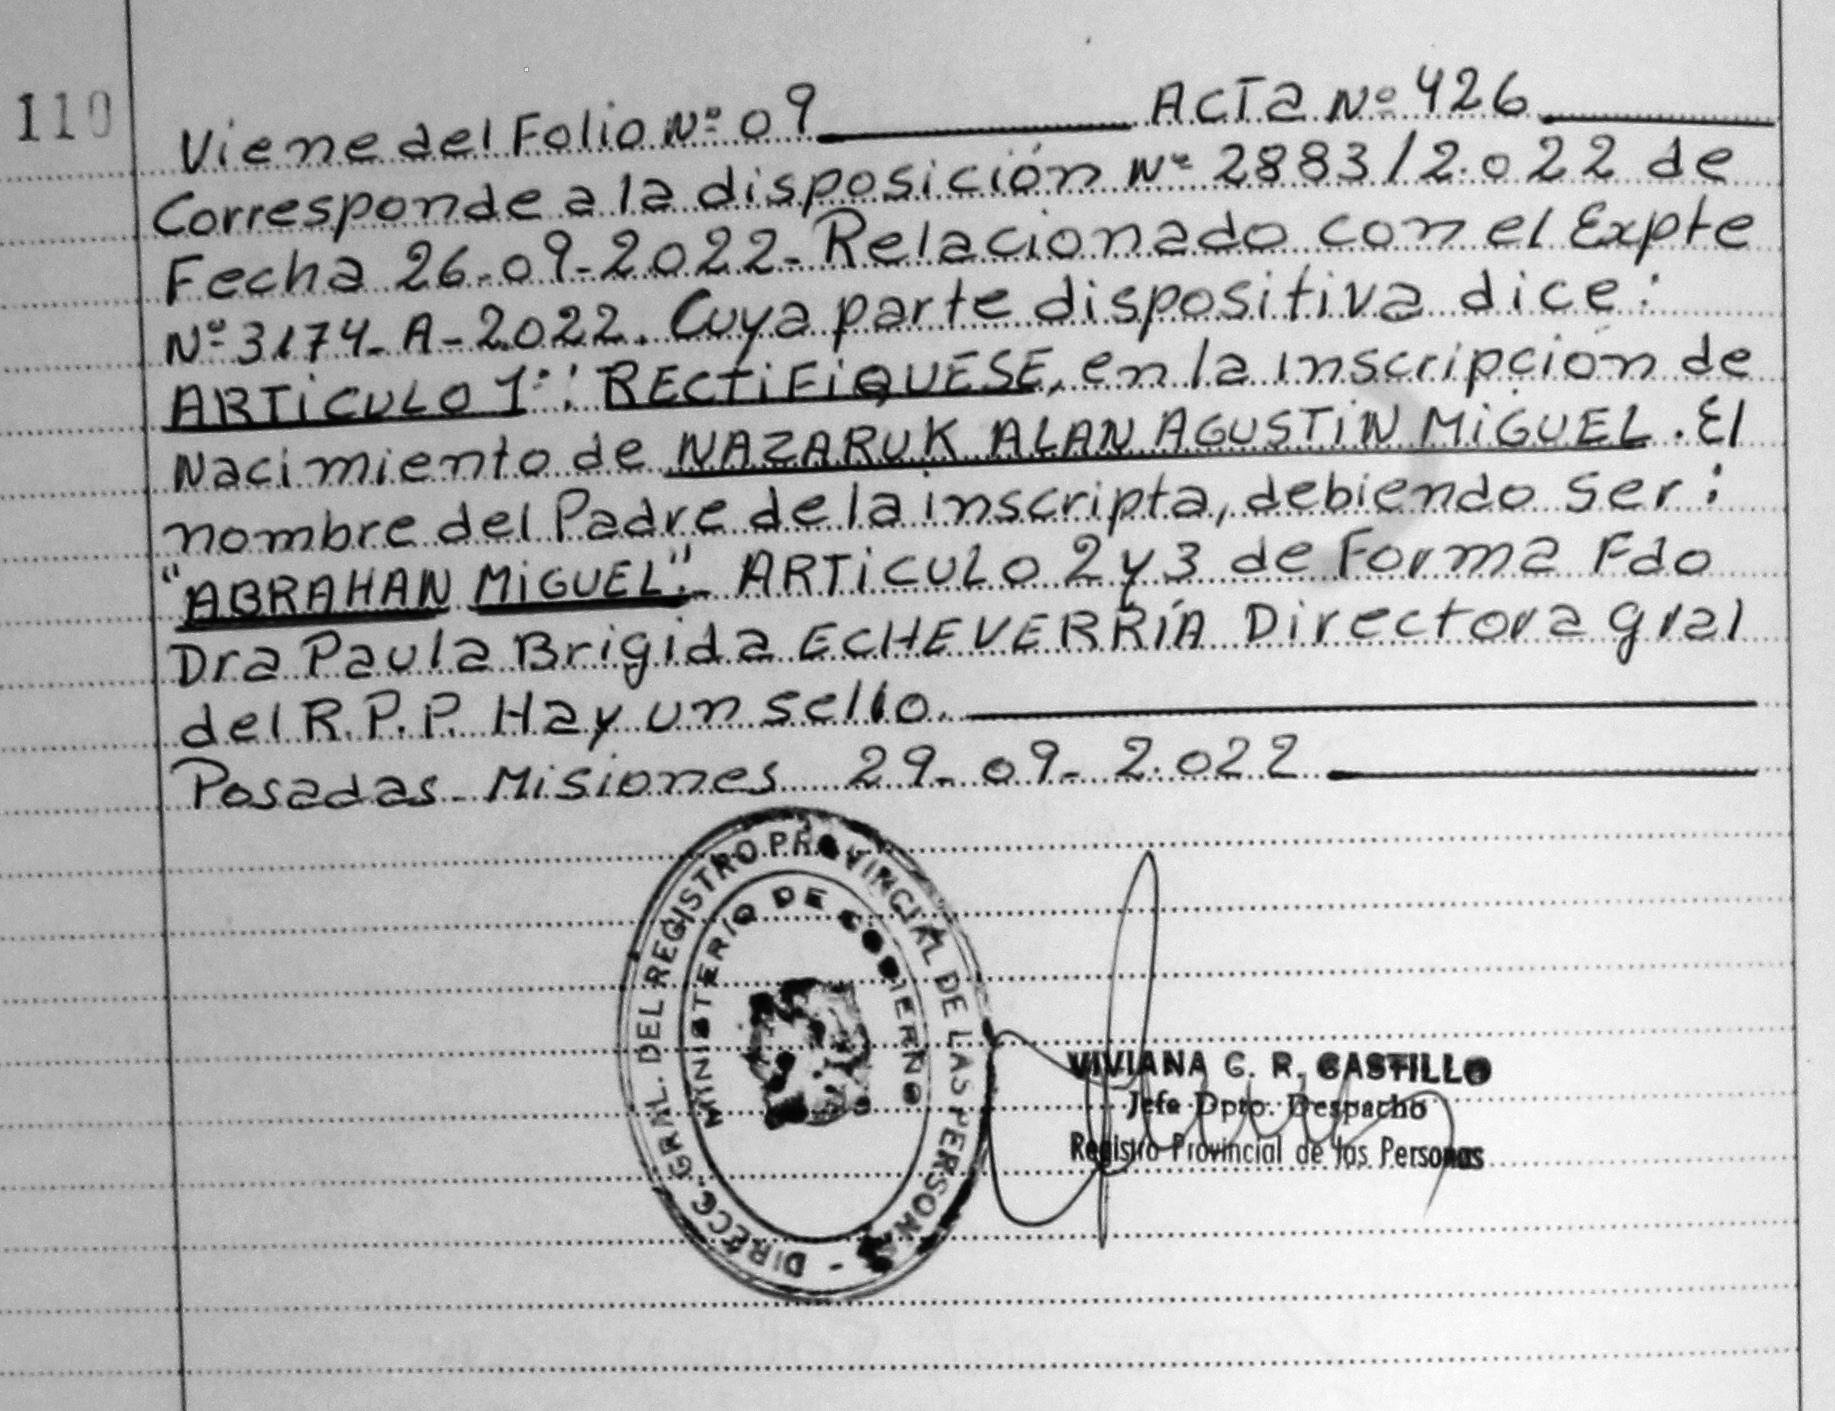 110
Viene del Folio Nº 09 ACTA Nº 426
Corresponde a la disposición Nº 2883/2.022 de
Fecha 26-09-2.022- Relacionado con el Expte
Nº 3174-A-2.022. Cuya parte dispositiva dice:
ARTiCULO 1º: RECTiFiQUESE, en la inscripción de
Nacimiento de NAZARUK ALAN AGUSTiN MiGUEL. El
nombre del Padre de la inscripta, debiendo ser:
"ABRAHAN MiGUEL".- ARTiCULO 2 y 3 de Forma Fdo
Dra Paula Brigida ECHEVERRíA Directora gral
del R.P.P. Hay un sello.
Posadas - Misiones 29-09-2.022
DIRECC. GRAL. DEL REGISTRO PROVINCIAL DE LAS PERSONAS -
MINISTERIO DE GOBIERNO
VIVIANA G. R. CASTILLO
Jefe Dpto. Despacho
Registro Provincial de las Personas